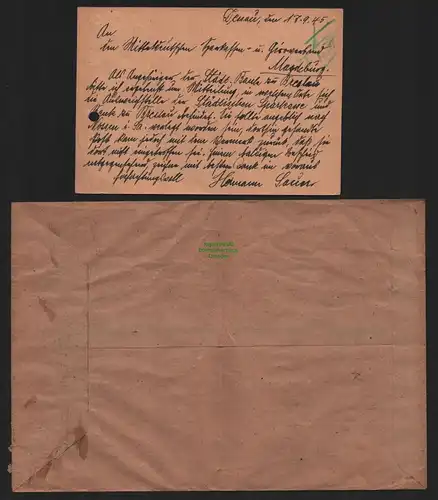 Dessau, am 18.9.45
An
den Mitteldeutschen Sparkassen- u. Giroverband
Magdeburg
Als Angehöriger der Städt. Bank zu Breslau
bitte ich ergebenst um Mitteilung, in welchem Orte sich
die Auffangstelle der Städtischen Sparkasse und
Bank zu Breslau befindet. Sie sollte angeblich nach
i. Sa. verlegt worden sein, dorthin gesandte
Post kam jedoch mit dem Vermerk zurück, daß sie
dort nicht eingetroffen sei. Ihrem baldigen Bescheid
entgegensehend, zeichne mit bestem Dank im voraus
hochachtungsvoll Hermann